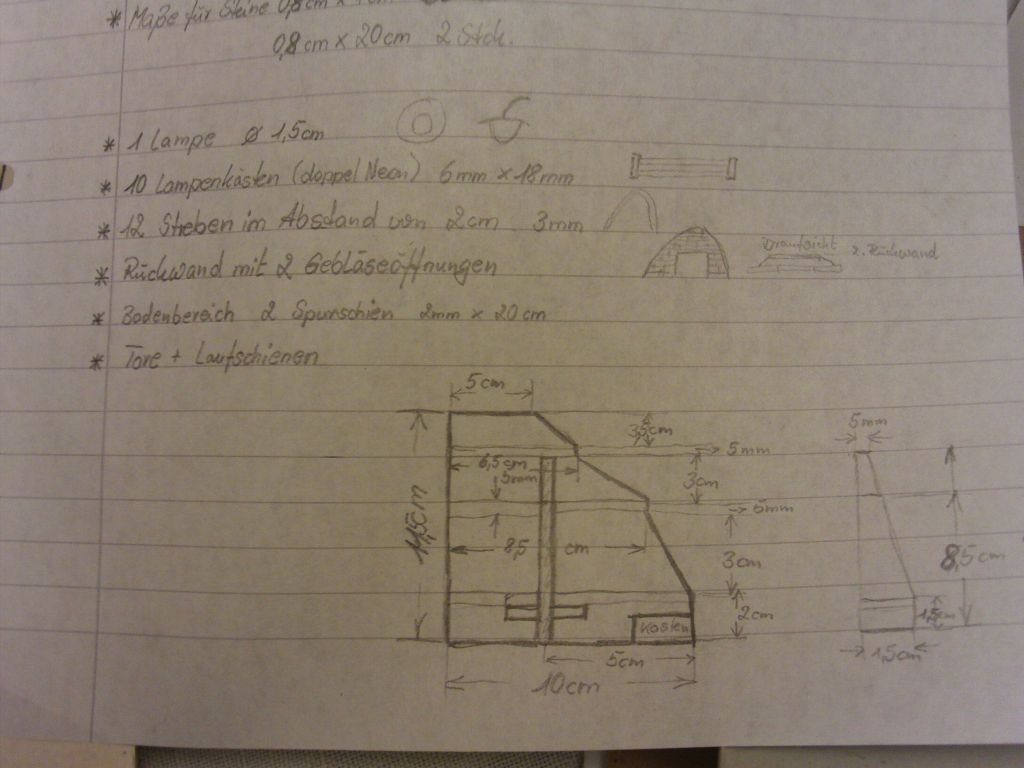 * Maße für Steine 0,8cm x
0,8cm x 20cm 2 Stck.
* 1 Lampe ø 1,5cm
* 10 Lampenkästen (doppel Neon) 6mm x 18mm
* 12 Streben im Abstand von 2cm 3mm
* Rückwand mit 2 Gebläseöffnungen
Draufsicht
z. Rückwand
* Bodenbereich 2 Spurschien 2mm x 20cm
* Tore + Laufschienen
5cm
3,5cm
5mm
5mm
6,5cm
5mm
3cm
5mm
11,5cm
8,5 cm
3cm
8,5cm
2cm
1,5cm
Kasten
5cm
1,5cm
10cm